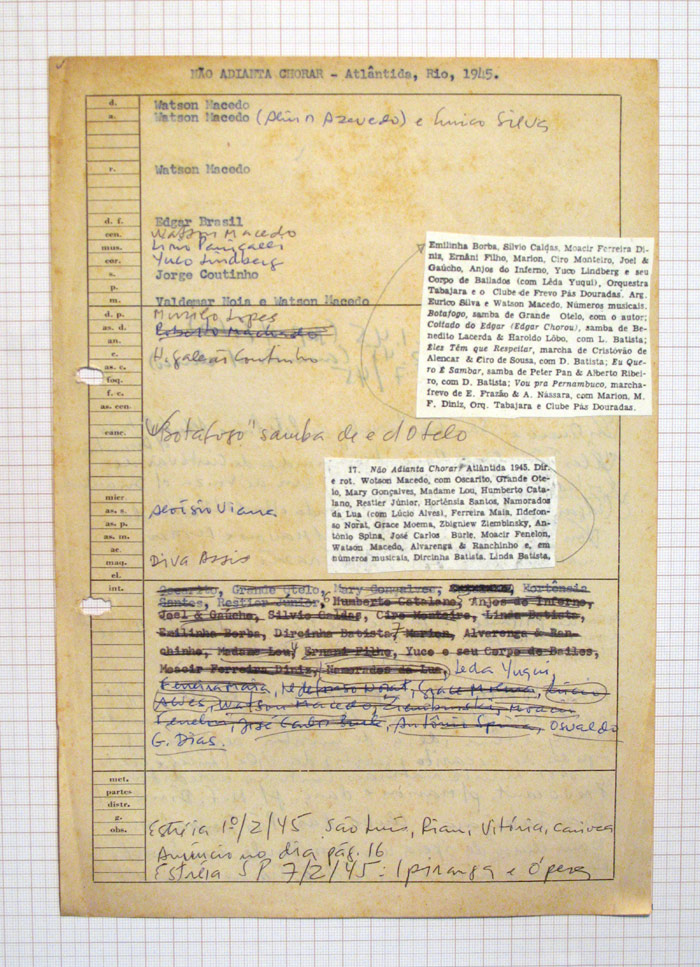 NÃO ADIANTA CHORAR - Atlântida, Rio, 1945.
d. Watson Macedo
a. Watson Macedo (Alinor Azevedo) e Eurico Silva
r. Watson Macedo
d. f. Edgar Brasil
cen. Watson Macedo
mus. Lirio Panicalli
cor. Yuco Lindberg
s. Jorge Coutinho
p.
m. Valdemar Noia e Watson Macedo
d. p. Murilo Lopes
as. d. Roberto Machado
an.
c. H. galeão Coutinho
as. c.
foq.
f. c.
as. cen.
Emilinha Borba, Silvio Caldas, Moacir Ferreira Di-
nis, Ernâni Filho, Marion, Ciro Monteiro, Joel &
Gaúcho, Anjos do Inferno, Yuco Lindberg e seu
Corpo de Bailados (com Lêda Yuqui), Orquestra
Tabajara e o Clube de Frevo Pás Douradas. Arg.
Eurico Silva e Watson Macedo. Números musicais.
Botafogo, samba de Grande Otelo, com o autor;
Coitado do Edgar (Edgar Chorou), samba de Be-
nedito Lacerda & Haroldo Lôbo, com L. Batista;
Êles Têm que Respeitar, marcha de Cristóvão de
Alencar & Ciro de Sousa, com D. Batista; Eu Que-
ro É Sambar, samba de Peter Pan & Alberto Ribei-
ro, com D. Batista; Vou pra Pernambuco, marcha-
frevo de E. Frazão & A. Nássara, com Marion, M.
F. Diniz, Orq. Tabajara e Clube Pás Douradas.
canc. "Botafogo" samba de e d Otelo
17. Não Adianta Chorar Atlântida 1945. Dir.
e rot. Watson Macedo, com Oscarito, Grande Ote-
lo, Mary Gonçalves, Madame Lou, Humberto Cata-
lano, Restier Júnior, Hortênsia Santos, Namorados
da Lua (com Lúcio Alves), Ferreira Maia, Ildefon-
so Norat, Grace Moema, Zbigniew Ziembinsky, An-
tônio Spina, José Carlos Burle, Moacir Fenelon,
Watson Macedo, Alvarenga & Ranchinho e, em
números musicais, Dircinha Batista, Linda Batista,
mier.
as. s. Aloisio Viana
as. p.
as. m.
ae.
maq. Diva Assis
el.
int. Oscarito, Grande Otelo, Mary Gonçalves, Hortência
Santos, Restier Junior, 6 Humberto Catalano, Anjos do Inferno,
Joel & Gaúcho, Silvio Caldas, Ciro Monteiro, Linda Batista,
Emilinha Borba, Dircinha Batista, 7 Marion, Alvarenga & Ran-
chinho, Madame Lou, Ernani Filho, Yuco e seu Corpo de Bailes,
Moacir Ferreira Diniz, Namorados da Lua, Leda Yuqui,
Ferreira Maia, Ildefonso Norat, Grace Moema, Lúcio
Alves, Watson Macedo, Ziembinski, Moacir
Fenelon, José Carlos Burle, Antônio Spina, Osvaldo
G. Dias.
met.
partes
distr.
g.
obs. Estréia 1º/2/45 São Luís, Rian, Vitória, Carioca
Anúncio no dia pág. 16
Estréia SP 7/2/45: Ipiranga e Ópera